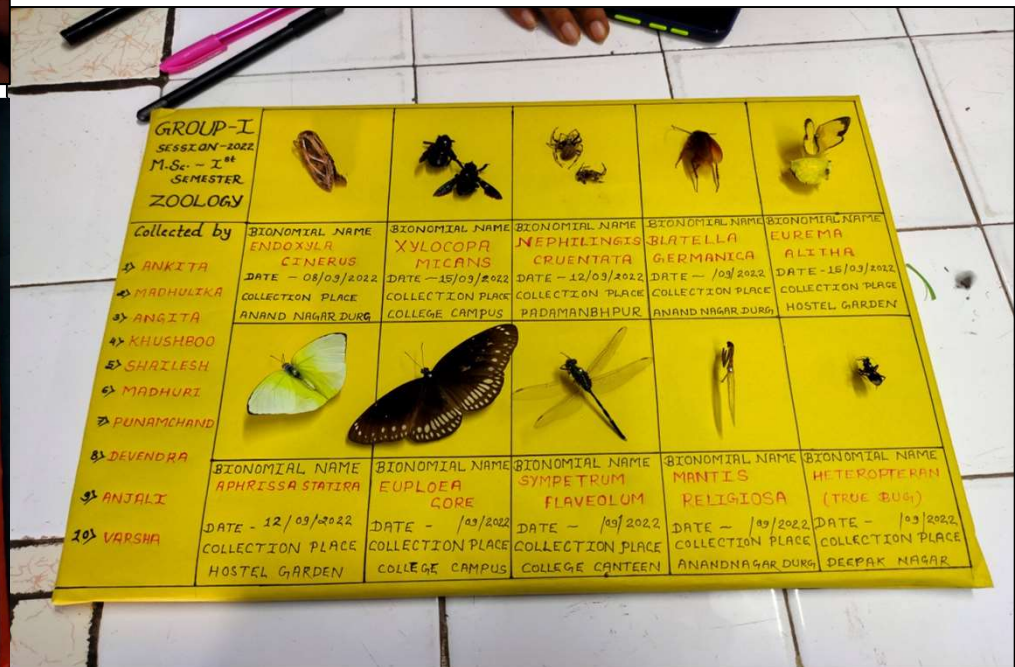 GROUP-I
SESSION-2022
M.Sc. - Ist
SEMESTER
ZOOLOGY
Collected by
1) ANKITA
2) MADHULIKA
3) ANGITA
4) KHUSHBOO
5) SHAILESH
6) MADHURI
7) PUNAMCHAND
8) DEVENDRA
9) ANJALI
10) VARSHA
BIONOMIAL NAME
ENDOXYLA
CINERUS
DATE - 08/09/2022
COLLECTION PLACE
ANAND NAGAR DURG
BIONOMIAL NAME
XYLOCOPA
MICANS
DATE - 15/09/2022
COLLECTION PLACE
COLLEGE CAMPUS
BIONOMIAL NAME
NEPHILINGIS
CRUENTATA
DATE - 12/09/2022
COLLECTION PLACE
PADAMANBHPUR
BIONOMIAL NAME
BLATELLA
GERMANICA
DATE - /09/2022
COLLECTION PLACE
ANAND NAGAR DURG
BIONOMIAL NAME
EUREMA
ALITHA
DATE - 15/09/2022
COLLECTION PLACE
HOSTEL GARDEN
BIONOMIAL NAME
APHRISSA STATIRA
DATE - 12/09/2022
COLLECTION PLACE
HOSTEL GARDEN
BIONOMIAL NAME
EUPLOEA
CORE
DATE - /09/2022
COLLECTION PLACE
COLLEGE CAMPUS
BIONOMIAL NAME
SYMPETRUM
FLAVEOLUM
DATE - /09/2022
COLLECTION PLACE
COLLEGE CANTEEN
BIONOMIAL NAME
MANTIS
RELIGIOSA
DATE - /09/2022
COLLECTION PLACE
ANANDNAGAR DURG
BIONOMIAL NAME
HETEROPTERAN
(TRUE BUG)
DATE - /09/2022
COLLECTION PLACE
DEEPAK NAGAR